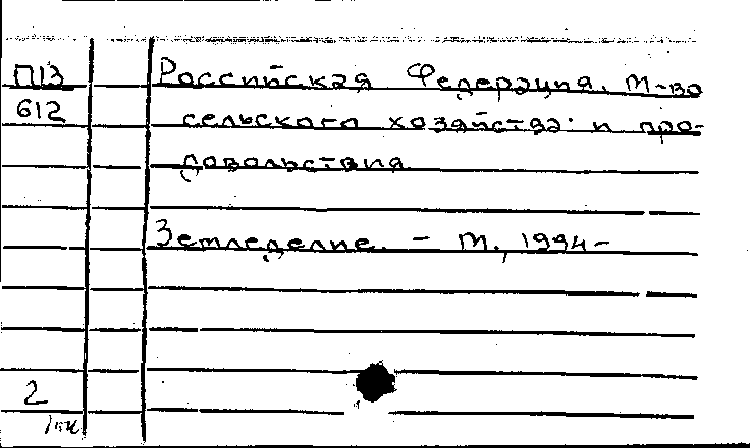 П13
612
Российская Федерация. М-во
сельского хозяйства и про-
довольствия
Земледелие. - М., 1994-
2